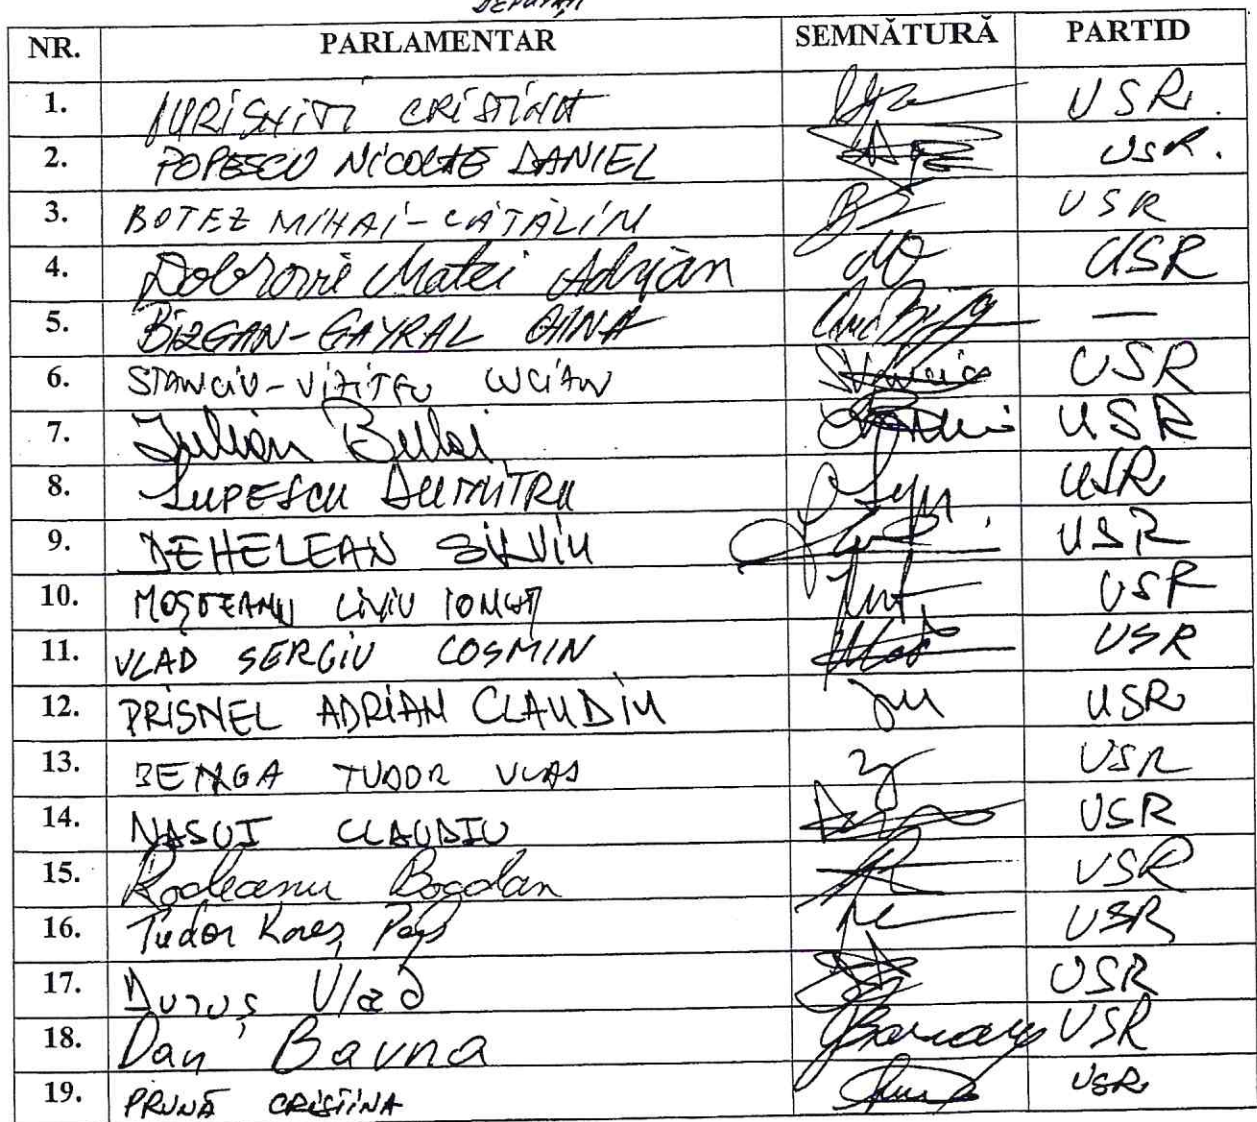 DEPUTAȚI
NR. PARLAMENTAR SEMNĂTURĂ PARTID
1. IURIȘNIȚI CRISTINA USR.
2. POPESCU NICOLAE DANIEL USR.
3. BOTEZ MIHAI-CĂTĂLIN USR
4. Dobrovie Matei Adrian USR
5. BIZGAN-GAYRAL OANA —
6. STANCIU-VIZITEU LUCIAN USR
7. Iulian Bulai USR
8. LUPESCU DUMITRU USR
9. DEHELEAN SILVIU USR
10. MOȘTEANU LIVIU IONUȚ USR
11. VLAD SERGIU COSMIN USR
12. PRISNEL ADRIAN CLAUDIU USR
13. BENGA TUDOR VLAD USR
14. NASUI CLAUDIU USR
15. Rodeanu Bogdan USR
16. Tudor Rareș Pop USR
17. Duruș Vlad USR
18. Dan Barna USR
19. PRUNĂ CRISTINA USR